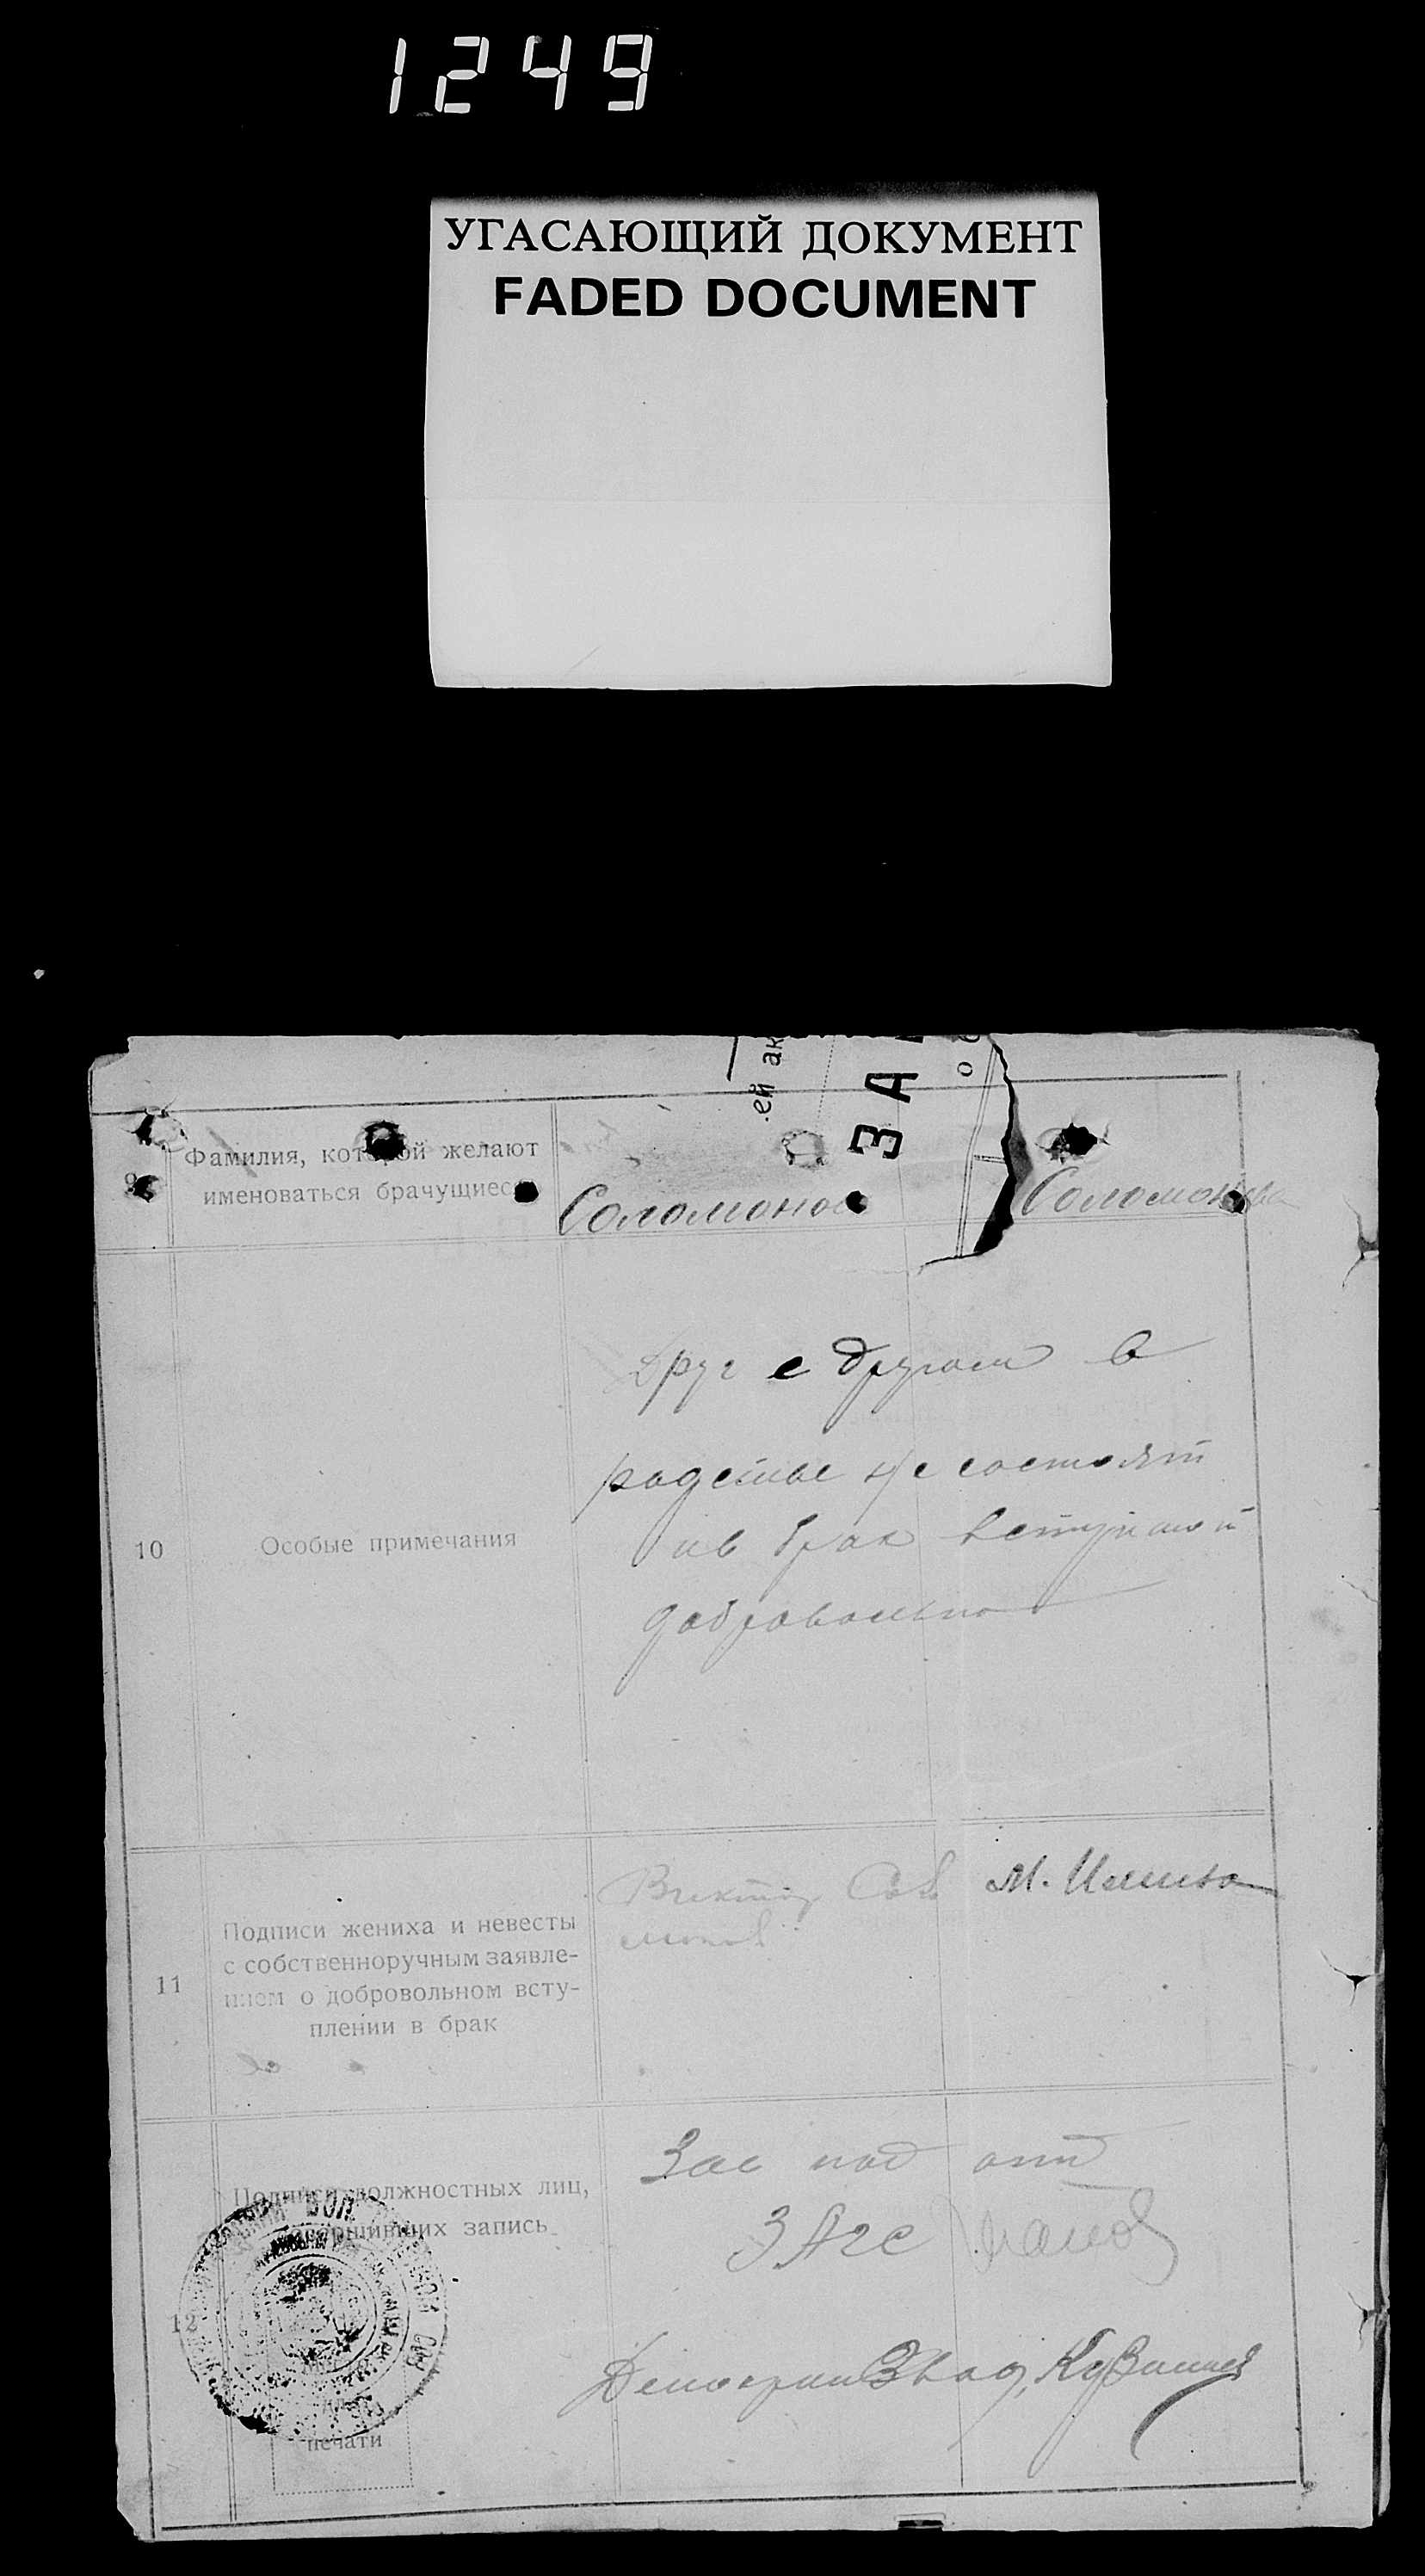 1249
УГАСАЮЩИЙ ДОКУМЕНТ
FADED DOCUMENT
ей ак
ЗА
о
9
Фамилия, которой желают
именоваться брачущиеся
Соломонов
Соломонова
10
Особые примечания
Друг с другом в
родстве не состоят
и в брак вступают
добровольно
11
Подписи жениха и невесты
с собственноручным заявле-
нием о добровольном всту-
плении в брак
Виктор Соло
монов
М.
12
Подписи должностных лиц,
совершивших запись
Зав под отд
ЗАГС
Делопроизвод.
печати